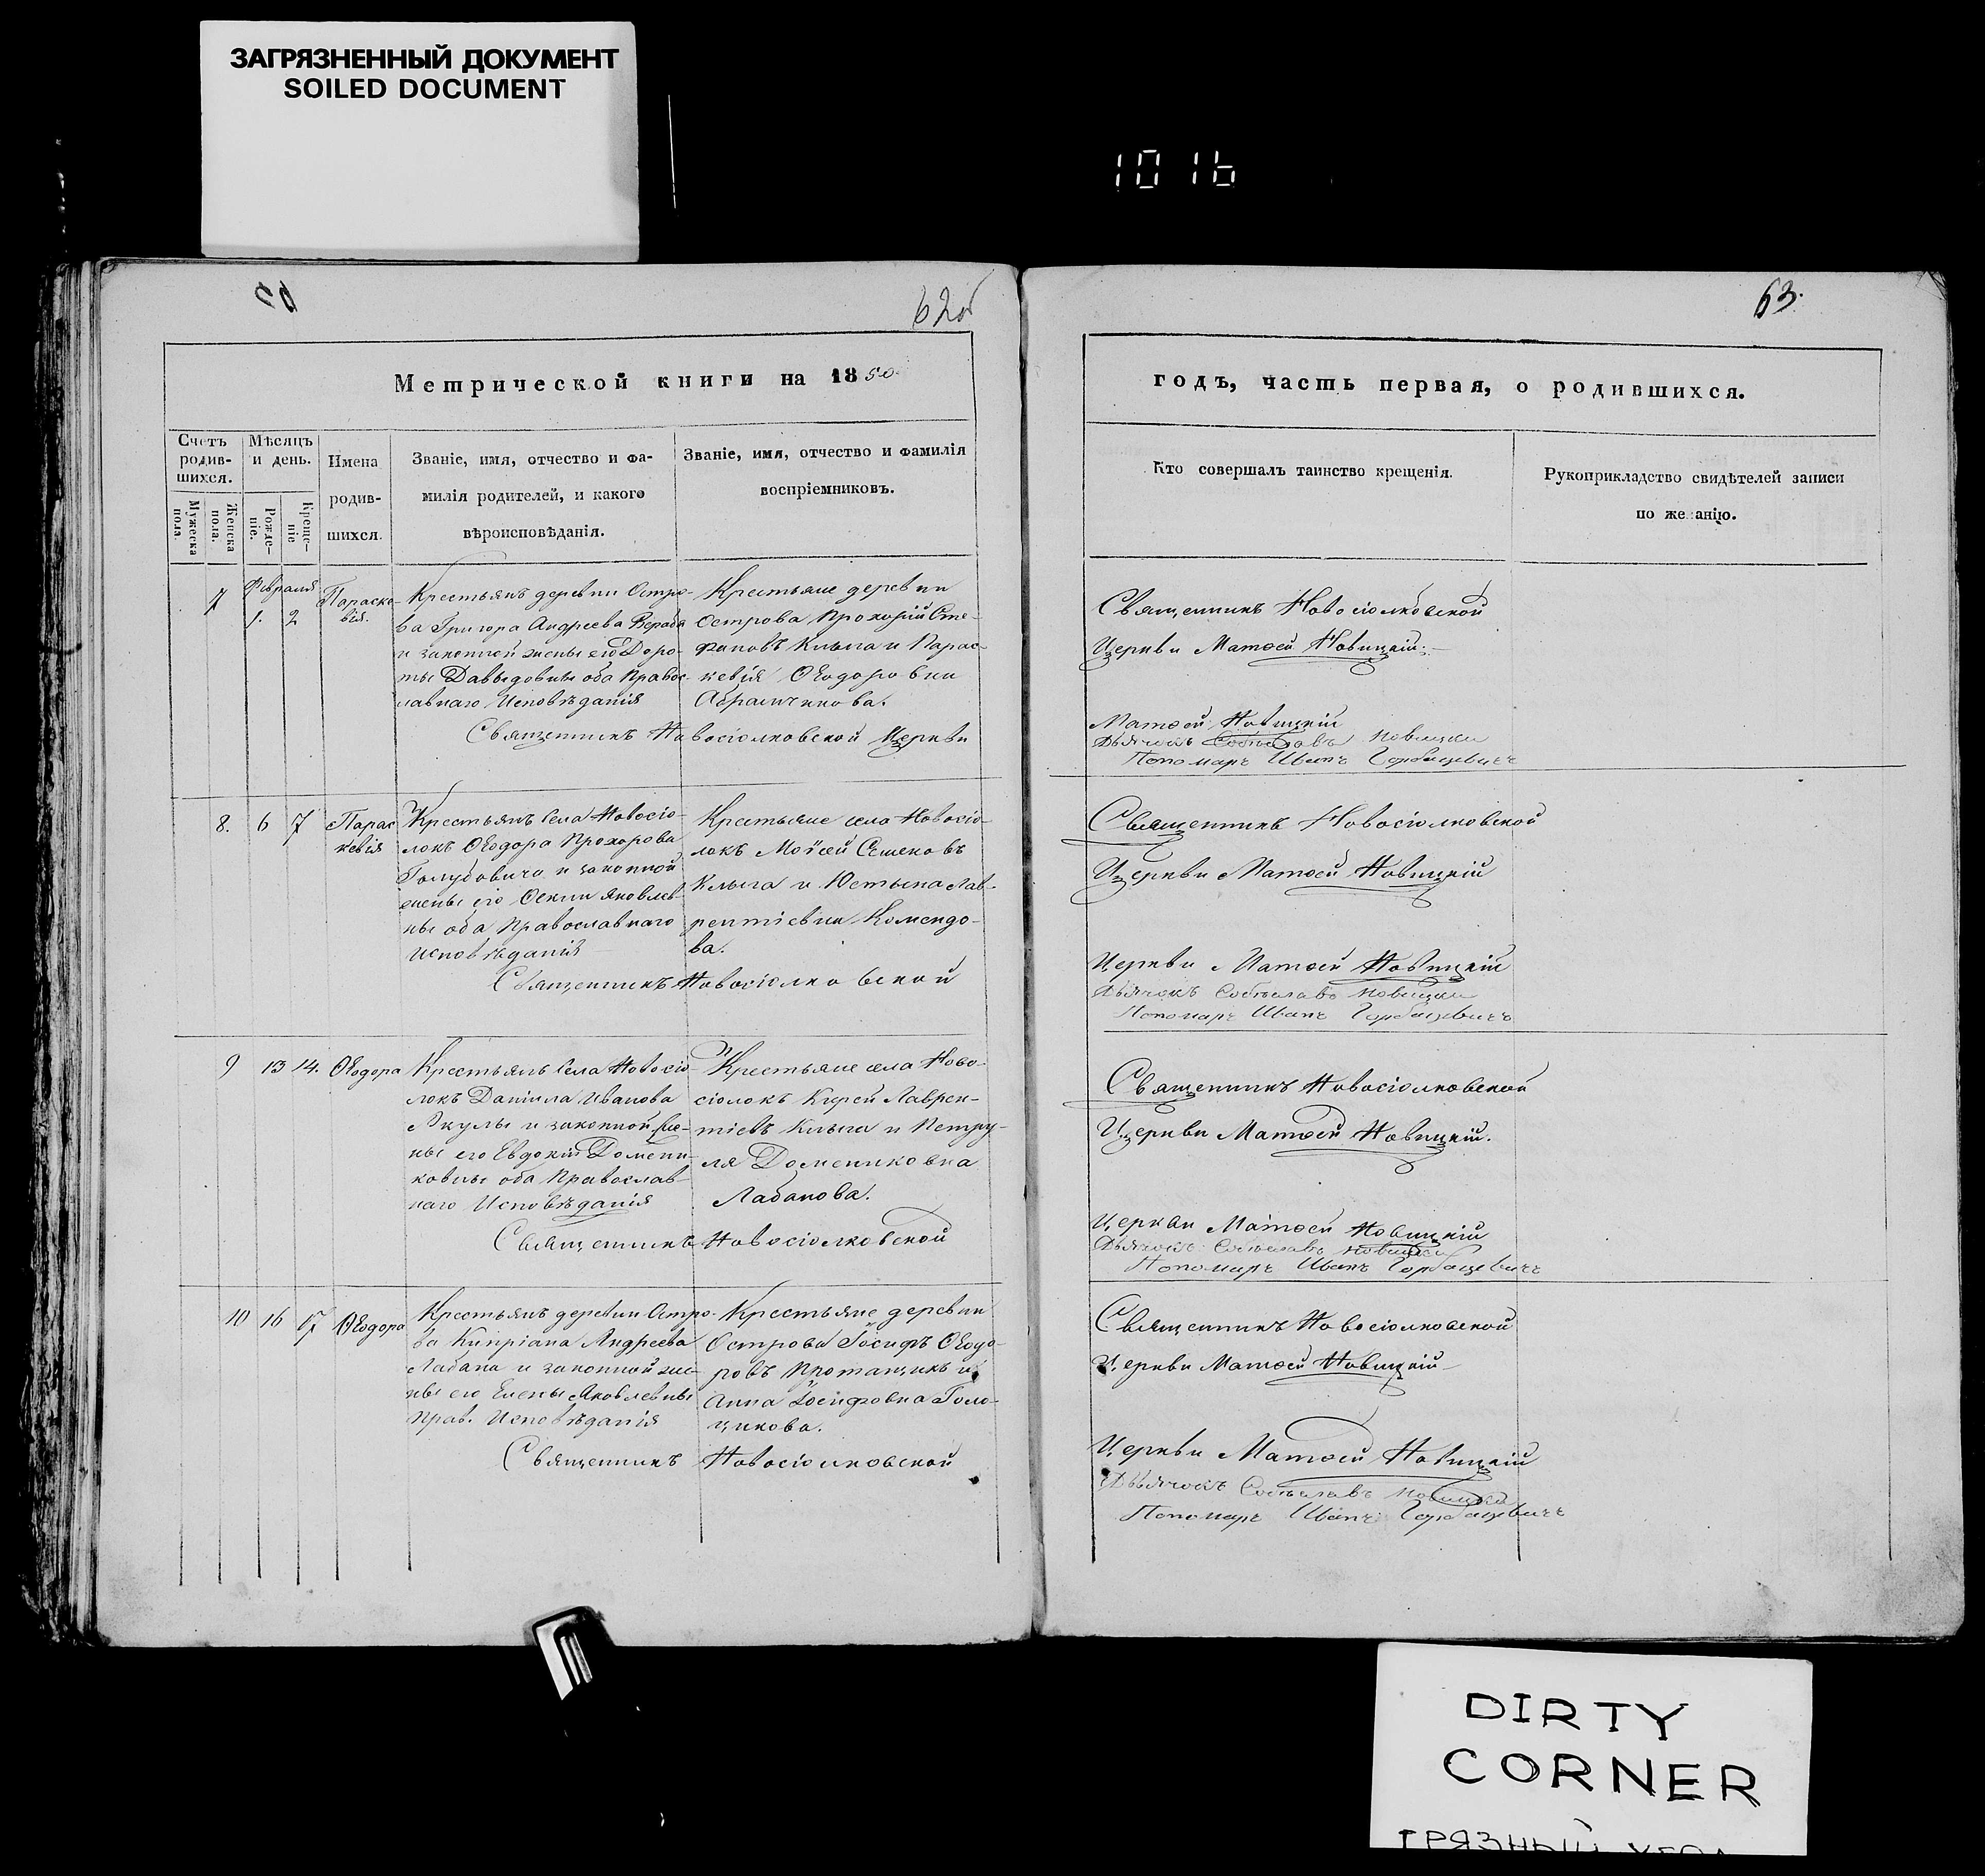 ЗАГРЯЗНЕННЫЙ ДОКУМЕНТ
SOILED DOCUMENT
1016
62об
63.
Метрической книги на 1850
годъ, часть первая, о родившихся.
Счетъ родившихся.
Мужеска пола.
Женска пола.
Мѣсяцъ и день.
Рожде-ніе.
Креще-ніе
Имена
родив-
шихся.
Званіе, имя, отчество и фа-
милія родителей, и какого
вѣроисповѣданія.
Званіе, имя, отчество и фамилія
воспріемниковъ.
Кто совершалъ таинство крещенія.
Рукоприкладство свидѣтелей записи
по же анію.
7
Февраля
1. 2
Параске-
вія.
Крестьянъ деревни Остро-
ва Григора Андреева
и законной жены его Доро-
ты Давыдовны оба Правос-
лавнаго Исповѣданія
Крестьяне деревни
Острова Прохорій Сте-
фановъ Клыга и Парас-
кевія Ѳеодоровна
Абрамчикова.
Священникъ Новосіолковской
Церкви Матѳей Новицкій.
Священникъ Новосіолковской Церкви
Матѳей Новицкій
Дьячокъ Новицкій
Пономарь Иванъ Горбацевичъ
8. 6 7
Парас
кевія
Крестьянъ села Новосіо-
локъ Ѳеодора Прохорова
Голубовича и законной
жены его Ѳеклы Яковлев-
ны оба Православнаго
Исповѣданія
Крестьяне села Новосіо-
локъ Моѵсей Семеновъ
Клыга и Юстына Лав-
рентіевна Комендо-
ва.
Священникъ Новосіолковской
Церкви Матѳей Новицкій
Священникъ Новосіолковской
Церкви Матѳей Новицкій
Дьячокъ Новицкій
Пономарь Иванъ Горбацевичъ
9 13 14.
Ѳеодора
Крестьянъ села Новосіо
локъ Даніила Иванова
Акулы и законной же-
ны его Евдокіи Домени-
ковны оба Православ-
наго Исповѣданія
Крестьяне села Ново-
сіолокъ Кирей Лаврен-
тіевъ Клыга и Петру-
ля Доменковна
Лабанова.
Священникъ Новосіолковской
Церкви Матѳей Новицкій.
Священникъ Новосіолковской
Церкви Матѳей Новицкій
Дьячокъ Новицкій
Пономарь Иванъ Горбацевичъ
10 16 17
Ѳеодора
Крестьянъ деревни Остро-
ва Кипріана Андреева
Лабана и законной же-
ны его Елены Яковлевны
Прав. Исповѣданія
Крестьяне деревни
Острова Іосифъ Ѳеодо-
ровъ Протащикъ и
Анна Іосифовна Голо-
щикова.
Священникъ Новосіолковской
Церкви Матѳей Новицкій
Священникъ Новосіолковской
Церкви Матѳей Новицкій
Дьячокъ Новицкій
Пономарь Иванъ Горбацевичъ
DIRTY
CORNER
ГРЯЗНЫЙ УГОЛ